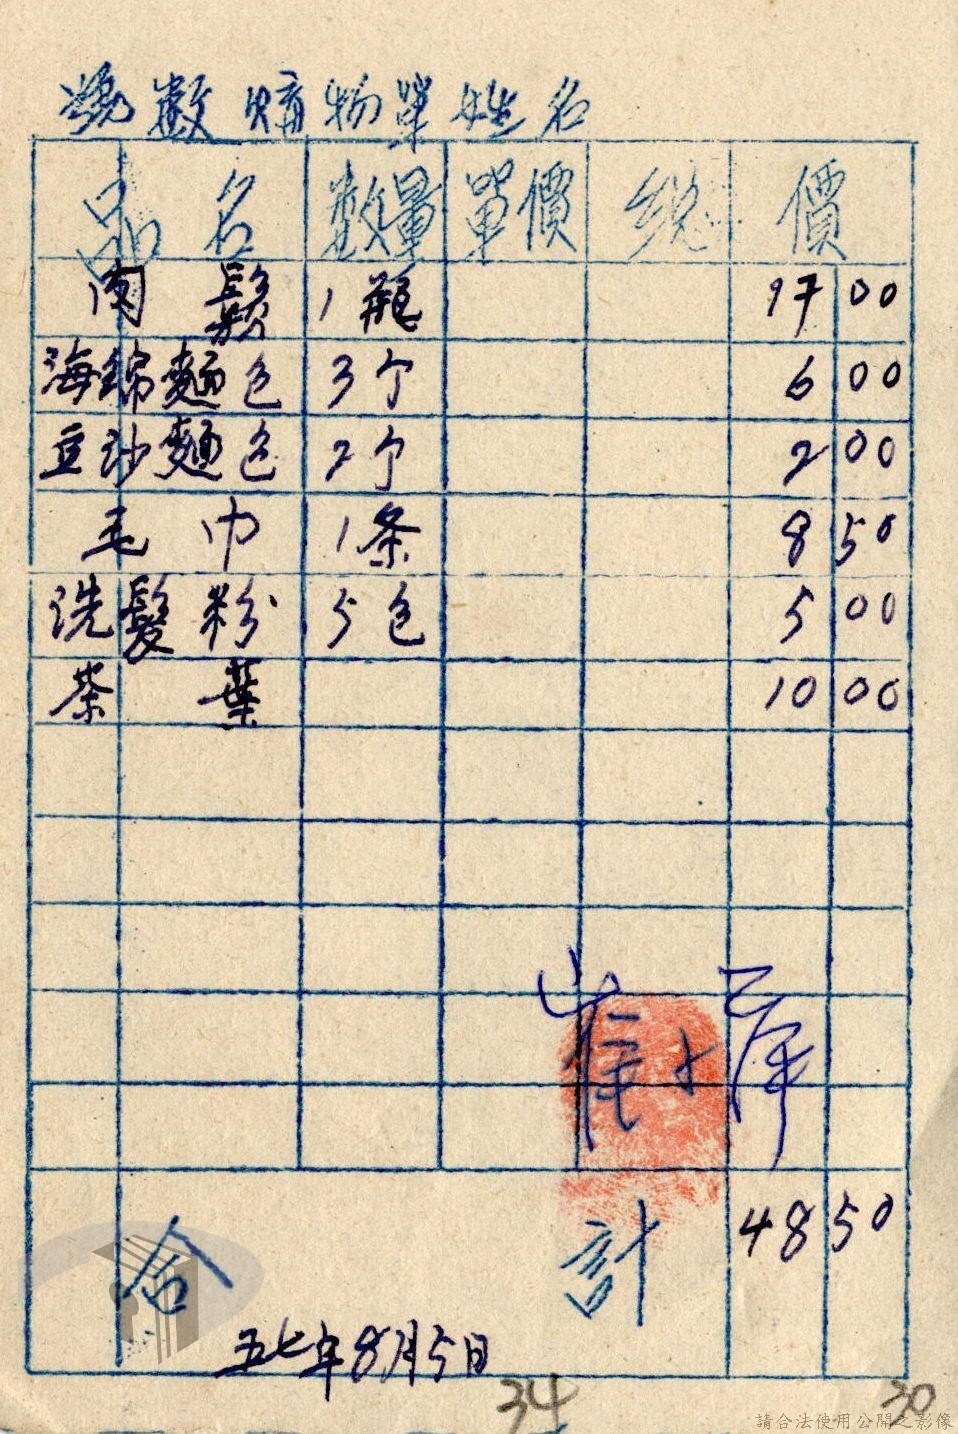 號數購物單姓名
品名 數量 單價 總價
肉鬆 1瓶 17 00
海綿麵包 3个 6 00
豆沙麵包 2个 2 00
毛巾 1条 8 50
洗髮粉 5包 5 00
茶葉 10 00
崔小萍
合計 48 50
五七年8月5日
34 30
請合法使用公開之影像